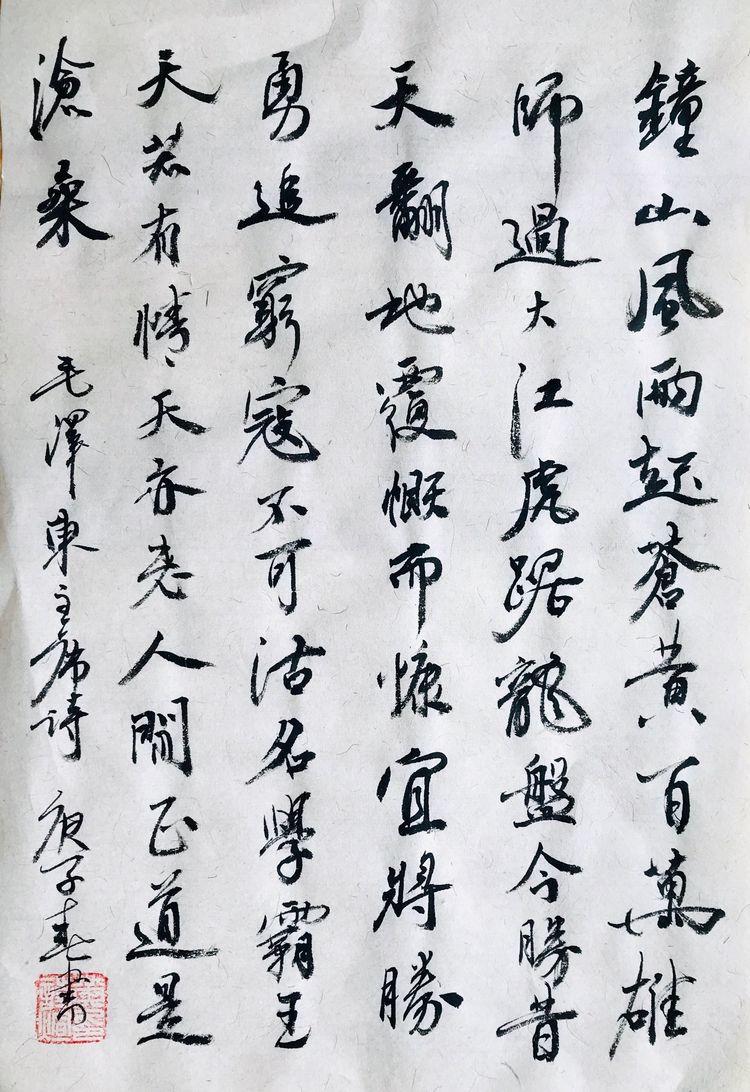 鐘山風雨起蒼黄百萬雄
師過大江虎踞龍盤今勝昔
天翻地覆慨而慷宜將勝
勇追窮寇不可沽名學霸王
天若有情天亦老人間正道是
滄桑 毛澤東主席詩 庚子春書